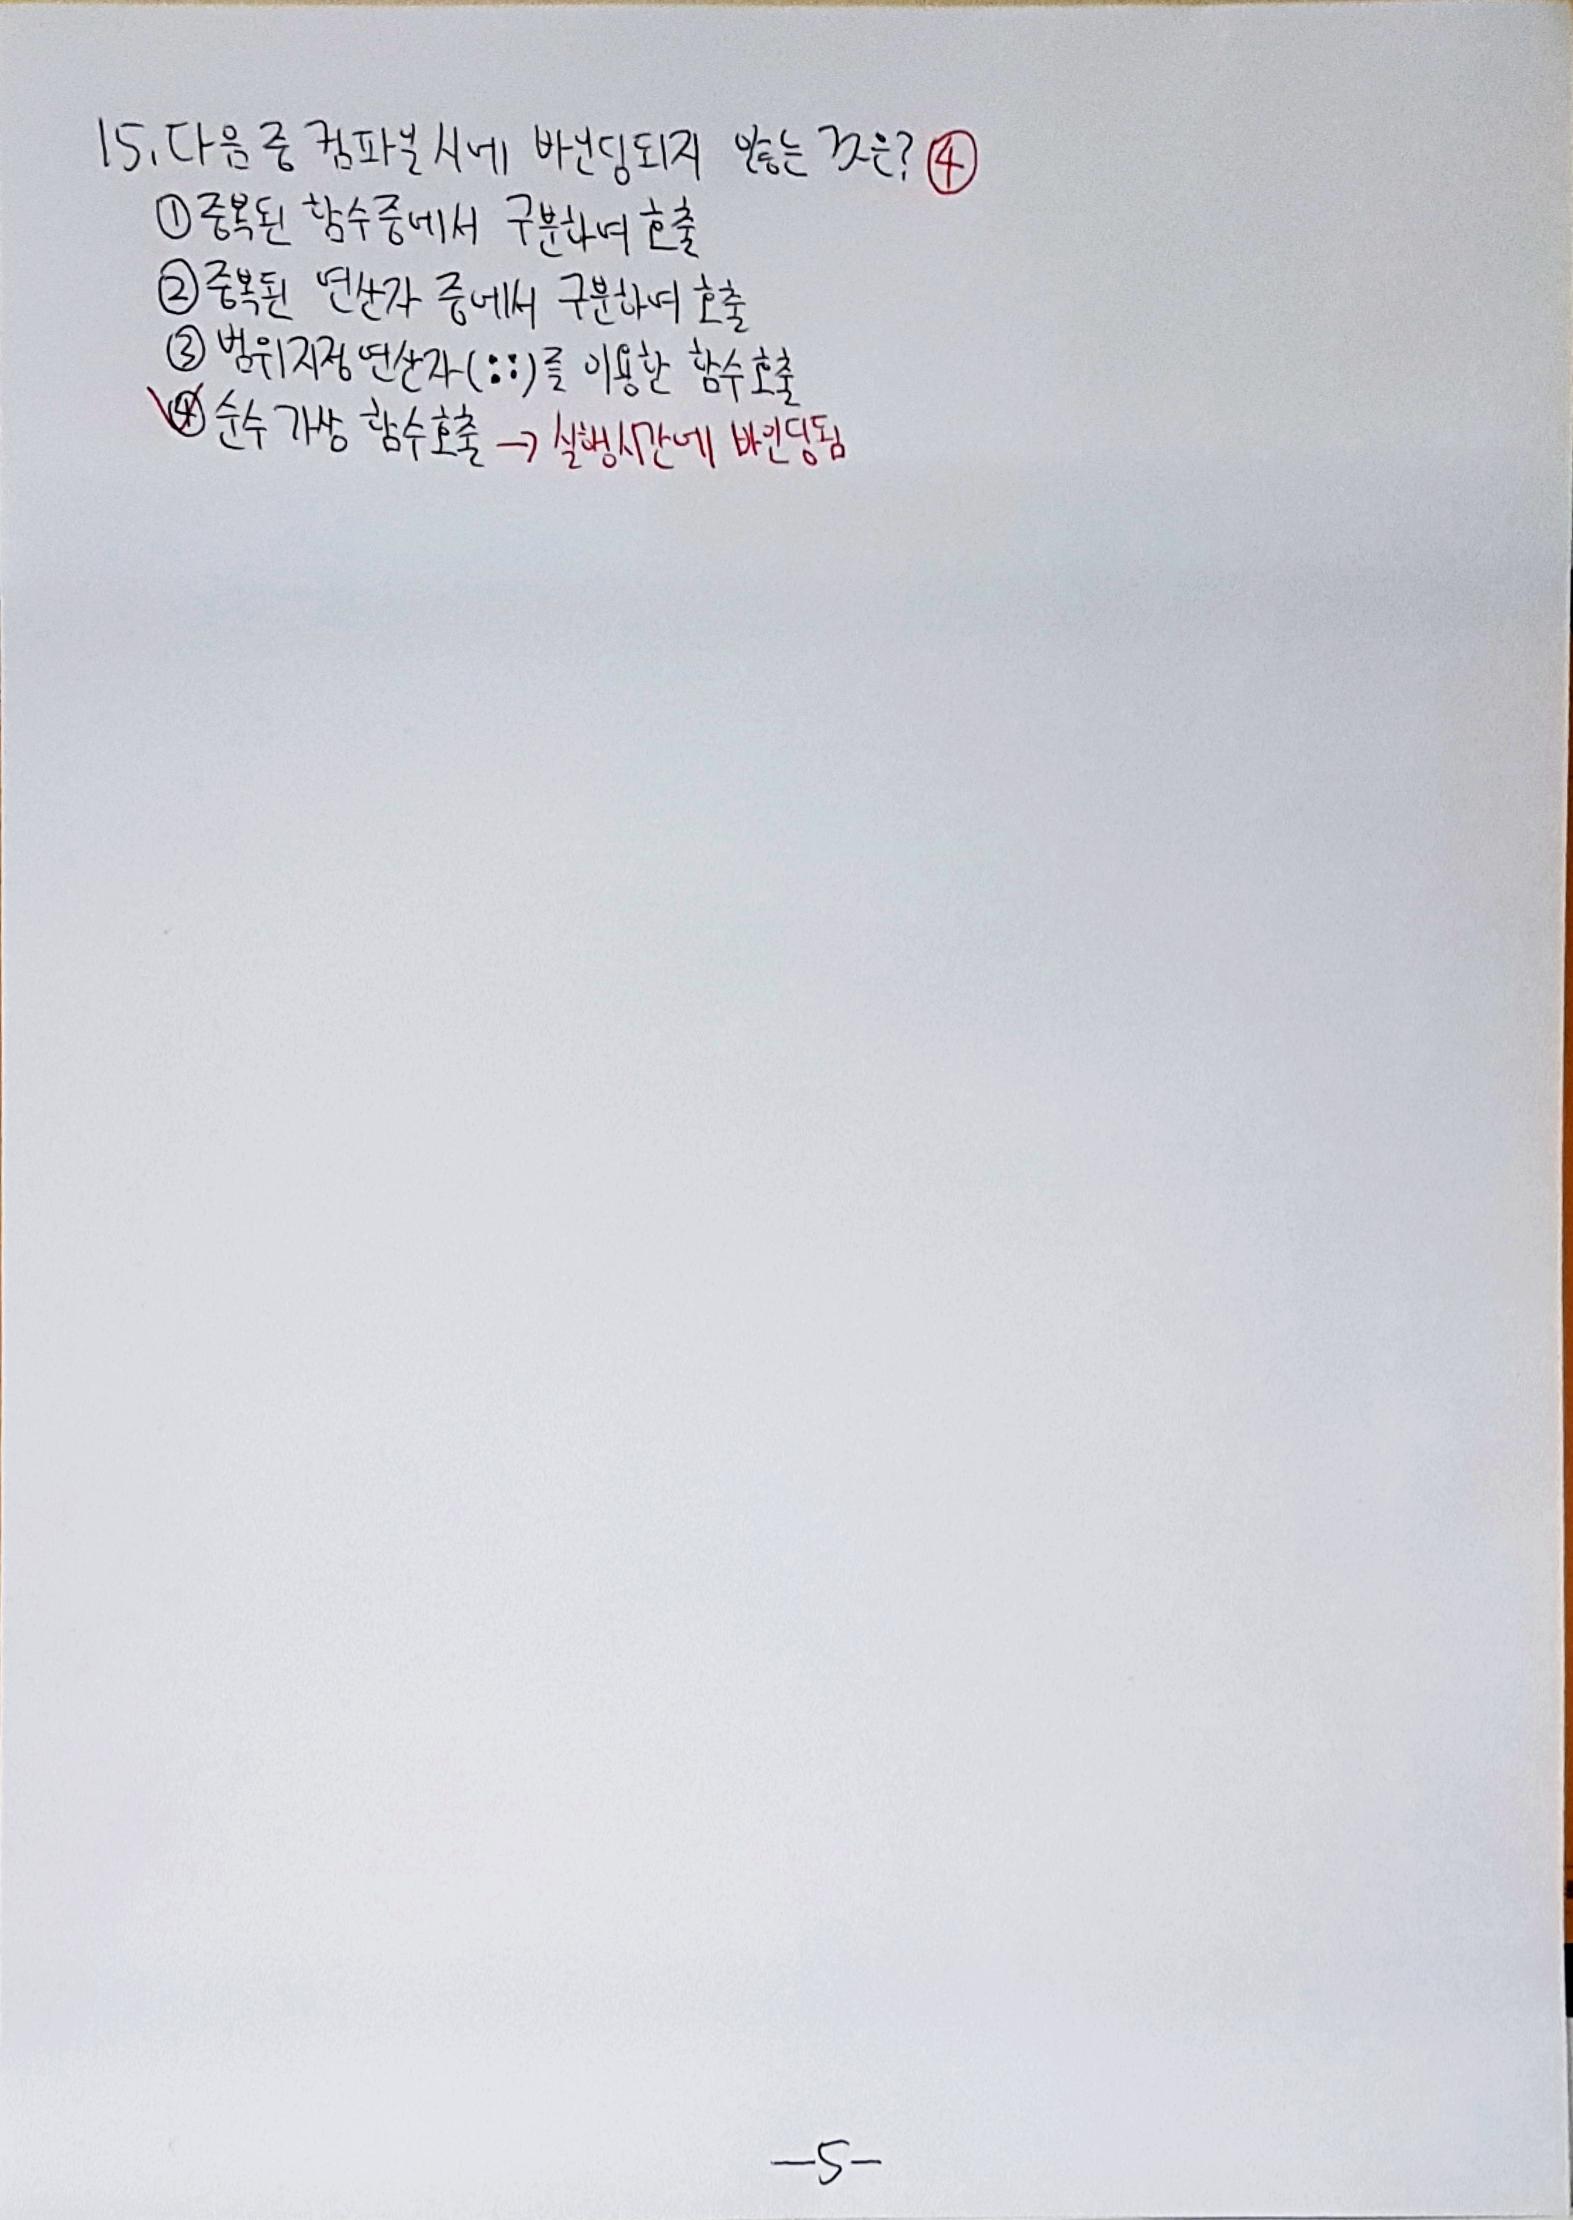 15. 다음 중 컴파일 시에 바인딩되지 않는 것은? ④
① 중복된 함수중에서 구분하여 호출
② 중복된 연산자 중에서 구분하여 호출
③ 범위지정연산자(::)를 이용한 함수호출
④ 순수 가상 함수호출 → 실행시간에 바인딩됨
-5-